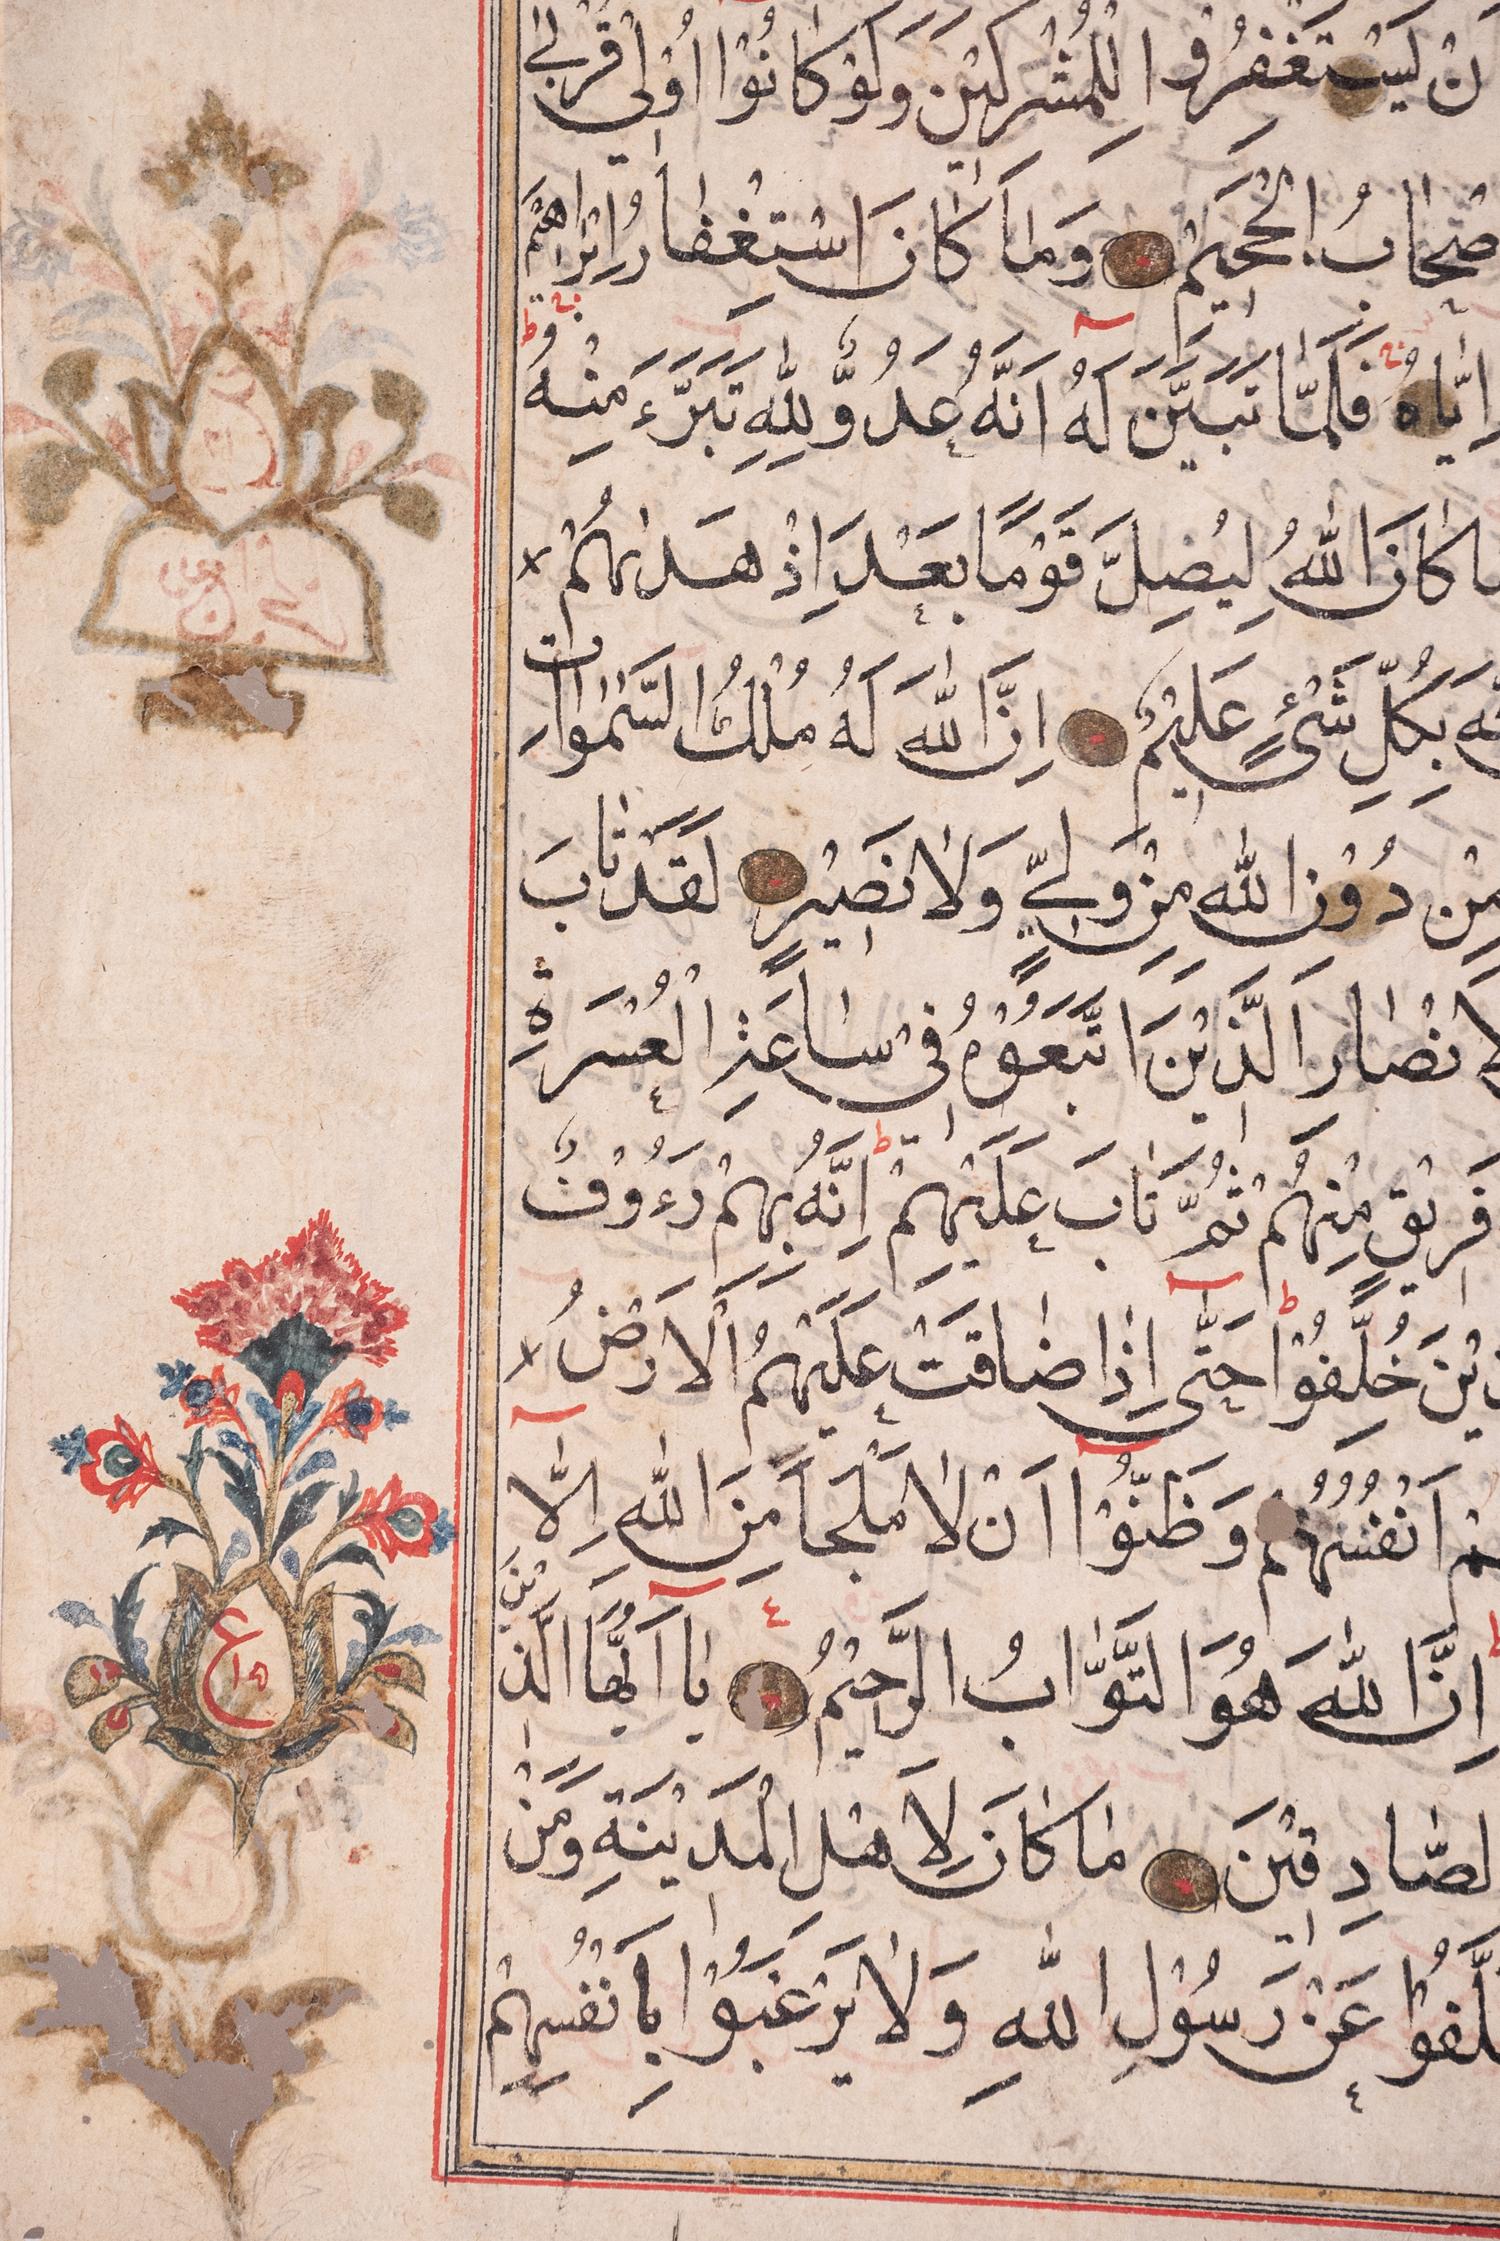 ن يَسْتَغْفِرُوا لِلْمُشْرِكِيْنَ وَلَوْ كَانُوْا اُوْلِى قُرْبٰى
صْحَابُ الْجَحِيْمِ وَمَا كَانَ اسْتِغْفَارُ اِبْرَاهِيْمَ
اِيَّاهُ فَلَمَّا تَبَيَّنَ لَهُ اَنَّهُ عَدُوٌّ لِلّٰهِ تَبَرَّءَ مِنْهُ
كَانَ اللّٰهُ لِيُضِلَّ قَوْمًا بَعْدَ اِذْ هَدٰىهُمْ
بِكُلِّ شَىْءٍ عَلِيْمٌ اِنَّ اللّٰهَ لَهُ مُلْكُ السَّمٰوَات
مِنْ دُوْنِ اللّٰهِ مِنْ وَلِىٍّ وَلَا نَصِيْرٍ لَقَدْ تَابَ
لَانْصَارِ الَّذِيْنَ اتَّبَعُوْهُ فِىْ سَاعَةِ الْعُسْرَةِ
فَرِيْقٍ مِنْهُمْ ثُمَّ تَابَ عَلَيْهِمْ ط اِنَّهُ بِهِمْ رَءُوْفٌ
يْنَ خُلِّفُوْا ط حَتّٰى اِذَا ضَاقَتْ عَلَيْهِمُ الْاَرْضُ
اَنْفُسُهُمْ وَظَنُّوْا اَنْ لَا مَلْجَأَ مِنَ اللّٰهِ اِلَّا
اِنَّ اللّٰهَ هُوَ التَّوَّابُ الرَّحِيْمُ يَا اَيُّهَا الَّذِيْنَ
لصَّادِقِيْنَ مَا كَانَ لِاَهْلِ الْمَدِيْنَةِ وَمَنْ
لَّفُوْا عَنْ رَسُوْلِ اللّٰهِ وَلَا يَرْغَبُوْا بِاَنْفُسِهِمْ